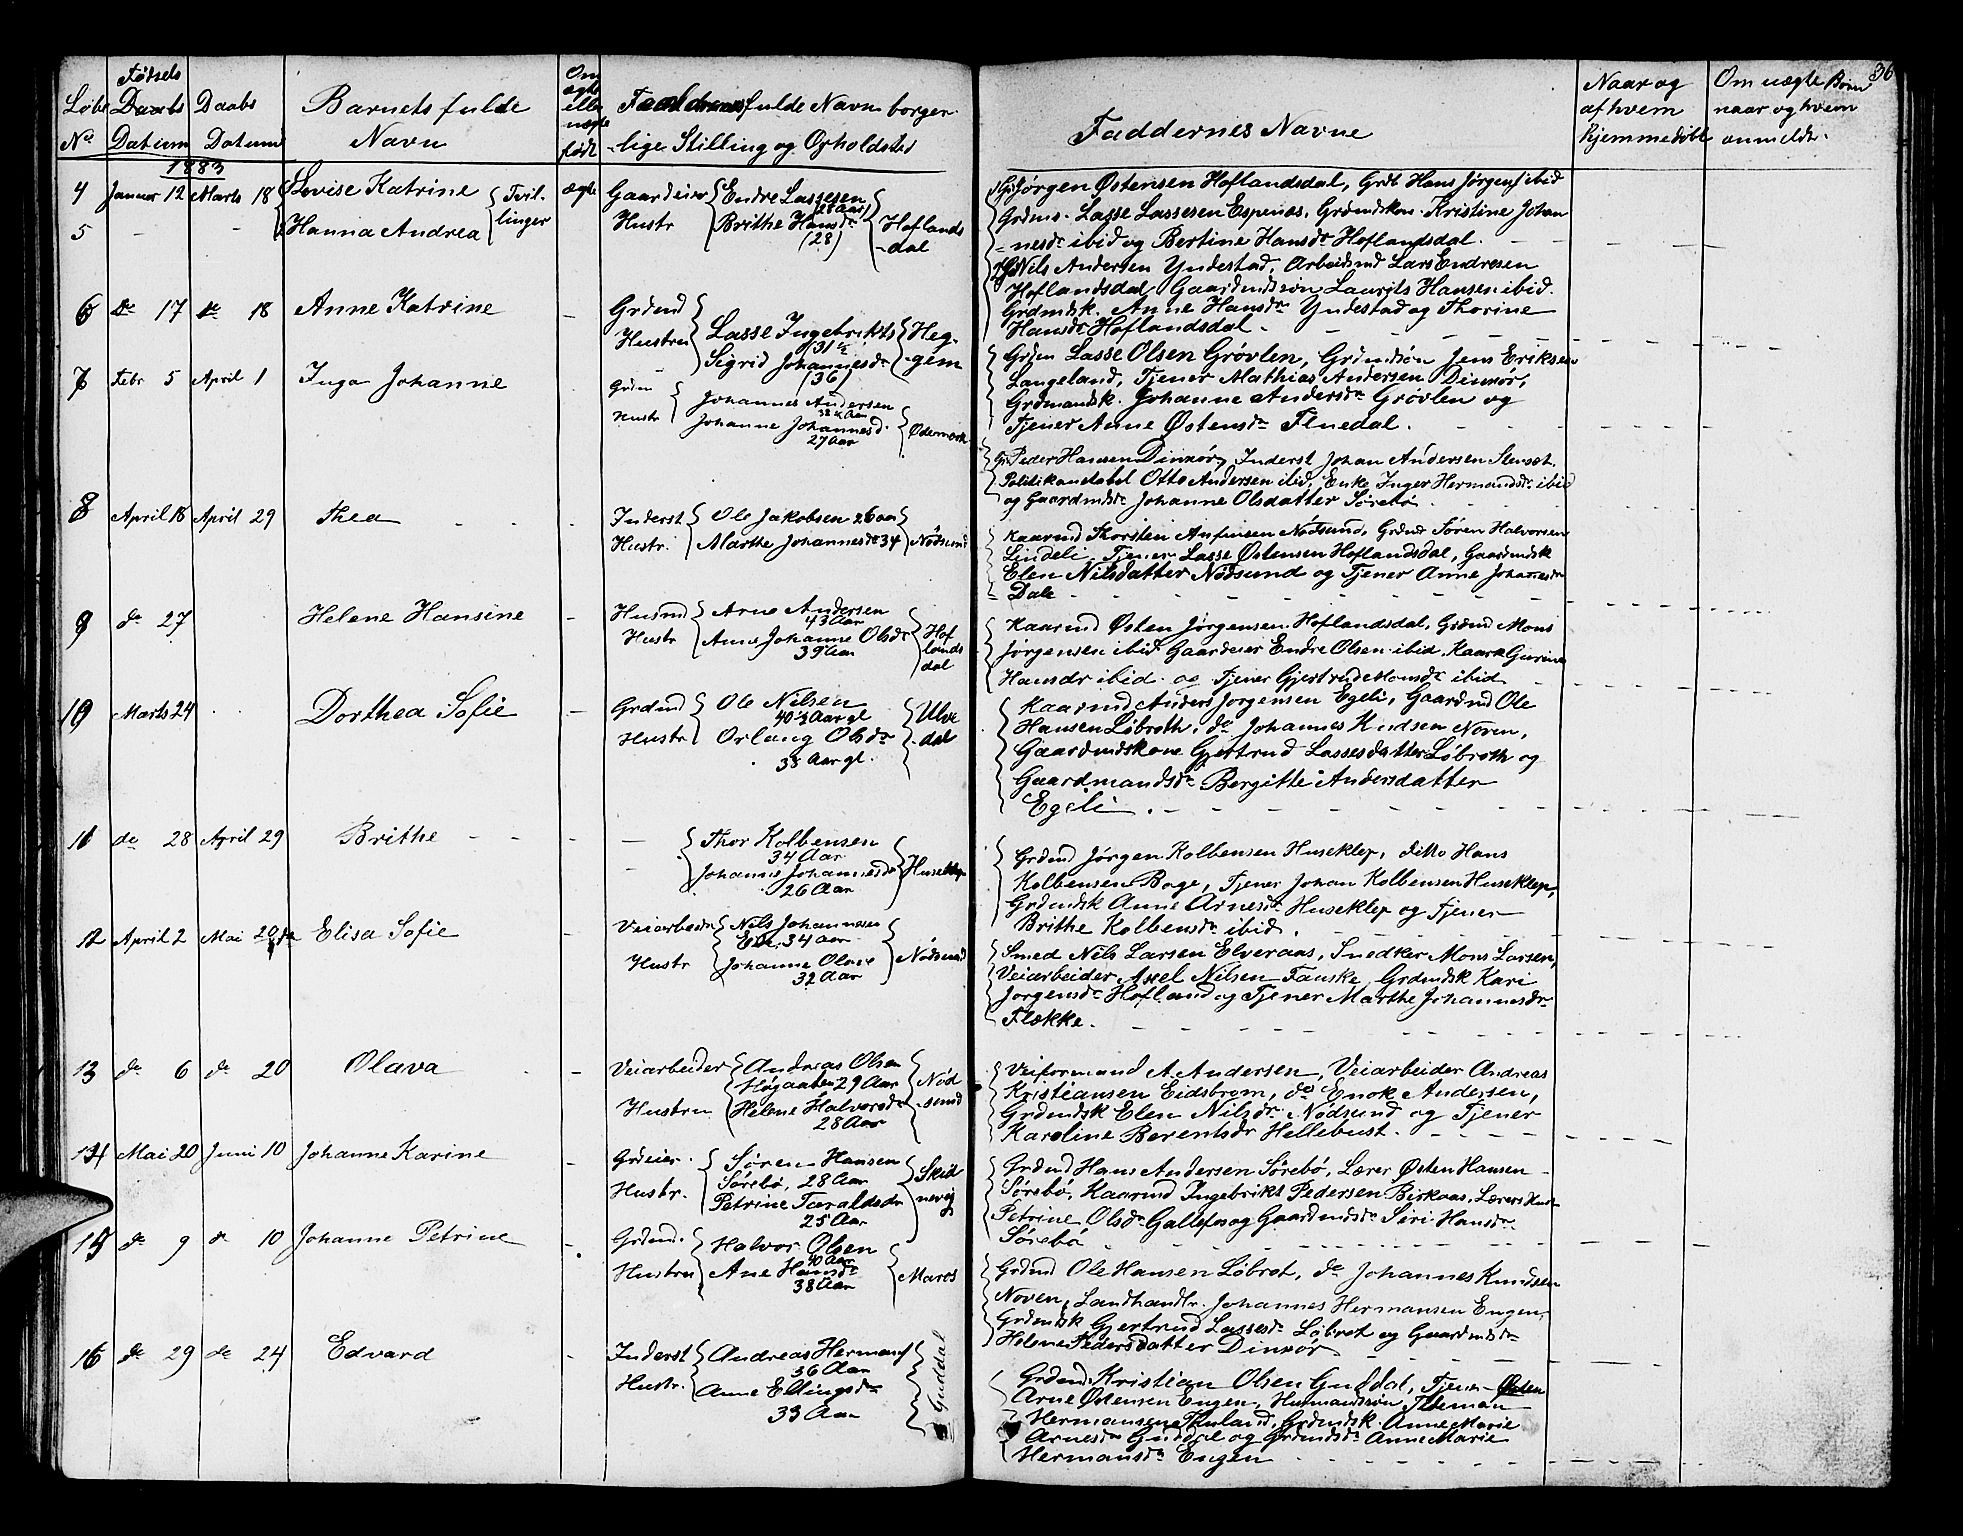 36
Løbe No
Fødsels Datum
Daabs Datum
Barnets fulde Navn
Om ægte eller uægte født
Forældrenes fulde Navn borger-
-lige Stilling og Opholdsted
Faddernes Navne
Naar og af hvem hjemmedøbt
Om uægte Børn naar og hvem anmeldt.
1883
4 Januar 12 Marts 18 Lovise Katrine Tvil- ægte Gaardeier Endre Lassesen
5 - - Hanna Andrea linger Hustr Brithe Hansdr (28) Hoflands
-dal
1) Jørgen Østensen Hoflandsdal, Grdb Hans Jørgens ibid
Grdms. Lasse Lassesen Espenæs, Grdmdskon. Kristine Johan
=nesdr ibid og Bertine Hansdr Hoflandsdal.
2) Nils Andersen Yndestad, Arbeidsmd Lars Endresen
Hoflandsdal Gaardmdssøn Laurits Hansen ibid.
Grdmdsk. Anne Hansdr Yndestad og Thorine
Hansdr Hoflandsdal.
6 do 17 do 18 Anne Katrine - Grdmd Lasse Ingebrikts Heg-
31 ½
Hustru Sigrid Johannesdr gem
(36)
Grdm Lasse Olsen Grøvlen, Grdmdsøn Jens Eriksen
Langeland, Tjener Mathias Andersen Dinxør,
Grdmandsk. Johanne Andersdr Grøvlen og
Tjener Anne Østensdr Fluedal.
7 Febr 5 April 1 Inga Johanne Grdm Johannes Andersen
Hustr Johanne Johannesd. Ødemark
27 Aar
Peder Hansen Dinxør, Inderst Johan Andersen Stensæt
Politikonstabel Otto Andersen ibid, Enke Inger Hermandsdr ibid
og Gaardmdsdr Johanne Olsdatter Sørebø
8 April 18 April 29 Thea - Inderst Ole Jakobsen 26 aar
Hustr. Marthe Johannesdr 34 Nødsund
Kaarmd Thorsten Anfinsen Nødsund, Grdmd Søren Halvorsen
Lindeli, Tjener Lasse Østensen Hoflandsdal, Gaardmdsk
Elen Nilsdatter Nødsund og Tjener Anne Johannesdr
Dale
9 do 27 Helene Hansine - Husmd Arne Andersen
43 Aar
Hustr Anne Johanne Olsdr Hof
39 Aar lands
dal
Kaarmd Østen Jørgensen Hoflandsdal, Grdmd Mons
Jørgensen ibid Gaardeier Endre Olsen ibid, Kaark Gurine
Hansdr ibid og Tjener Gjertrude Monsdr ibid
10 Marts 24 Dorthea Sofie - Grdmd Ole Nilsen Ulve
40 ½ Aar gl -dal
Hustr Orlaug Olsdr
38 Aar gl.
Kaarmd Anders Jørgensen Egeli, Gaardmd Ole
Hansen Løbroth, do Johannes Knudsen Noven,
Gaardmdskone Gjertrud Lassesdatter Løbroth og
Gaardmandsdr Bergitte Andersdatter
Egeli.
11 do 28 April 29 Brithe - - Thor Kolbensen
34 Aar
Johanne Johannesdr Huseklep
26 Aar
Grdmd Jørgen Kolbensen Huseklep, ditto Hans
Kolbensen Boge, Tjener Johan Kolbensen Huseklep,
Grdmdsk Anne Arnesdr Huseklep og Tjener
Brithe Kolbensdr ibid.
12 April 2 Mai 20de Elisa Sofie Veiarbeidr Nils Johannesen
Eide, 34 aar Nødsund
Hustr Johanne Olsdr
32 Aar
Smed Nils Larsen Elveraas, Snedker Mons Larsen,
Veiarbeider Axel Nilsen Fauske, Grdmdsk Kari
Jørgensdr Hofland og Tjener Marthe Johannesdr
Flekke.
13 do 6 do 20 Olava - Veiarbeider Andreas Olsen
Høgaaben 29 Aar Nød
Hustru Helene Halvorsdr -sund
28 Aar
Veiformand A. Andersen, Veiarbeider Andreas
Kristiansen Eidsbrom, do Enok Andersen,
Grdmdsk Elen Nilsdr Nødsund og Tjener
Karoline Berentsdr Hellebust.
14 Mai 20 Juni 10 Johanne Karine - Grdeier. Søren Hansen Skid
Sørebø, 28 Aar nevig
Hustr. Petrine Taraldsdr
25 Aar
Grdmd Hans Andersen Sørebø, Lærer Østen Hansen
Sørebø, Kaarmd Ingebrikt Pedersen Birkaas, Lærers Hustr
Petrine Olsdr Gallefos og Gaardmdsdr Siri Hansdr
Sørebø
15 do 9 do 10 Johanne Petrine - Grdmd. Halvor Olsen
40 Aar
Hustru Ane Hansdr Mares
38 Aar
Grdmd Ole Hansen Løbrot, do Johannes Knudsen
Noven, Landhandlr. Johannes Hermansen Engen,
Grdmdsk Gjertrud Lassesdr Løbrot og Gaardmdsdr
Helene Pedersdatter Dinxør
16 do 29 do 24 Edvard - Inderst Andreas Hermans
36 Aar
Hustr. Anne Ellingsdr Guddal
33 Aar
Grdmd Kristian Olsen Guddal, Tjener Østen
Arne Østensen Engen, Husmandssøn Tideman
Hermansen Thuland, Grdmdsk. Anne Marie
Arnesdr Guddal og Grdmdsdr Anne Marie
Hermansdr Engen